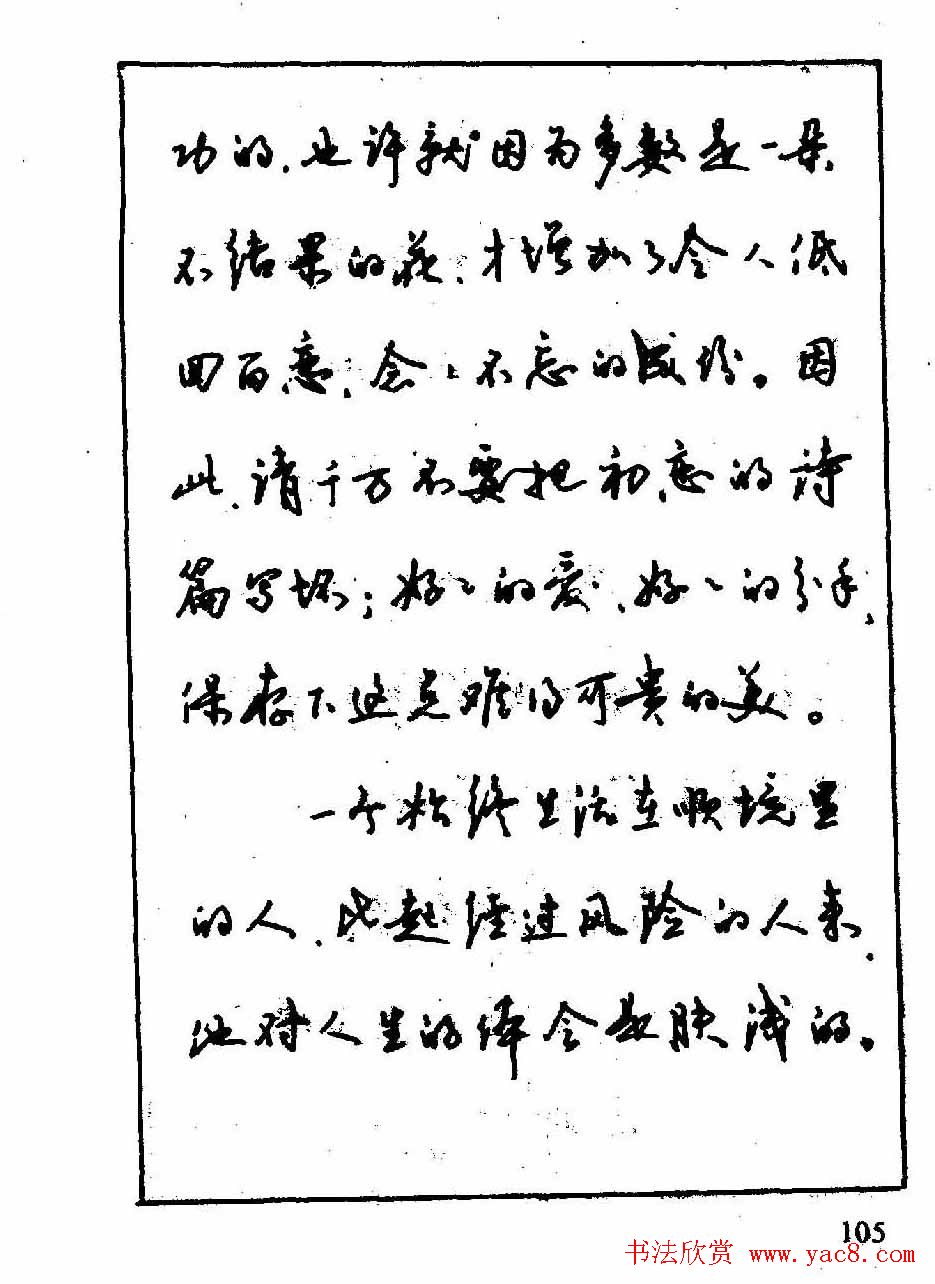 功的,也许就因为多数是一朵
不结果的花,才增加了令人低
回百恋,念念不忘的成份。因
此,请千万不要把初恋的诗
篇写坏;好好的爱,好好的分手,
保存下这点难得可贵的美。
一个始终生活在顺境里
的人,比起经过风险的人来,
他对人生的体会是肤浅的。
105
书法欣赏 www.yac8.com